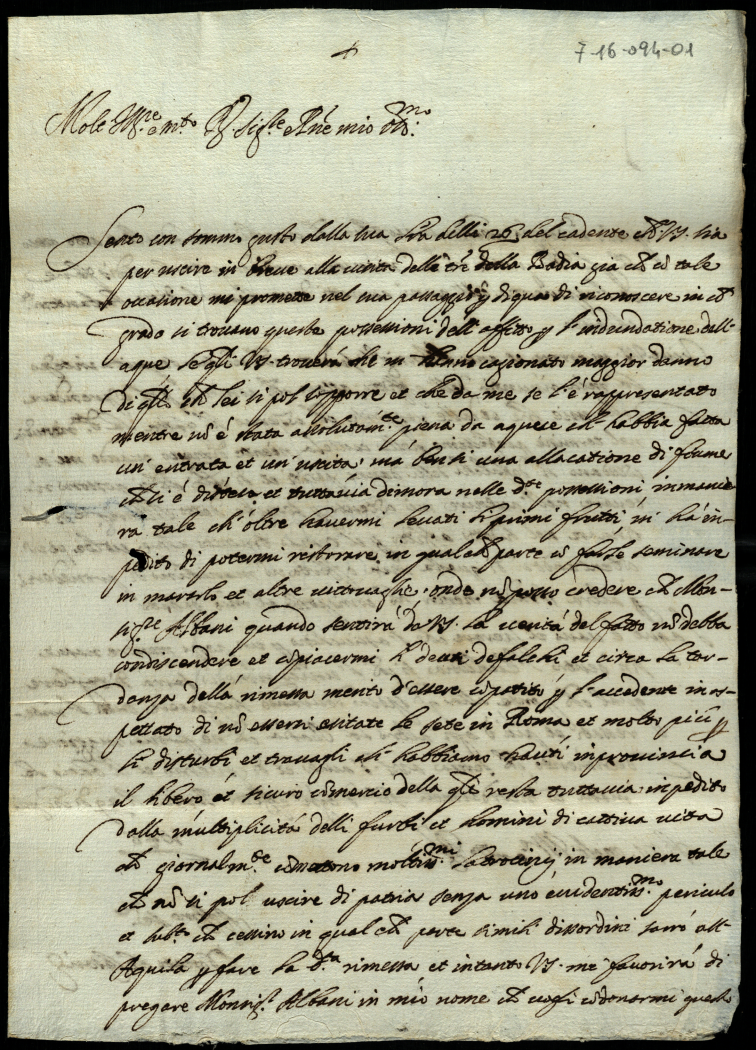 7-16-094-01
Molto Ill.re e m.to R. Sig.re P.ne mio oss.mo
Sento con sommo gusto dalla sua delli 26 del cadente ch V.S. sia
per uscire in breve alla visita delle tre della Badia gia ch cõ tale
occasione mi promette nel suo passaggio p di qua di riconoscere in ch
grado si trovano queste possessioni dell'affitto p l'inundatione dell'
aque se gli V.S. troverà che mi hanno cagionato maggior danno
di qllo ch lei si pol supporre et che da me se l'è rappresentato
mentre nõ è stata assolutam.te piena da aquece ch habbia fatta
un'entrata et un'uscita, ma bensi una allacatione di fiume
ch li è distesa et tuttavia dimora nelle d.te possessioni in manie
ra tale ch'oltre havermi levati li primi frutti, mi ha im-
pedito di potermi ristorare in qualch parte cõ farle seminare
in et altre vittuvaghe, onde nõ posso credere ch Mon-
sig.re Albani quando sentirà da V.S. la verità del fatto nõ debba
condiscendere et cõpiacermi li devuti defalchi et circa la tar-
danza della rimessa merito d'essere cõpatito p l'accedente inas-
pettato di nõ essersi esitate le sete in Roma et molto più p
li disturbi et travagli ch habbiamo hauti in provincia
il libero et sicuro comercio della qle resta tuttavia inpedito
dalla multiplicità delli furbi et homini di cattiva vita
ch giornalm.te cõmettono moltiss.mi latrocinij in maniera tale
ch nõ si pol uscire di patria senza uno evidentiss.mo periculo
et sub.to ch cessino in qualch parte simili dissordini sarrò all'
Aquila p fare la d.ta rimessa et intanto V.S. me favorirà di
pregare Monsig.r Albani in mio nome ch vogli cõdonarmi questo